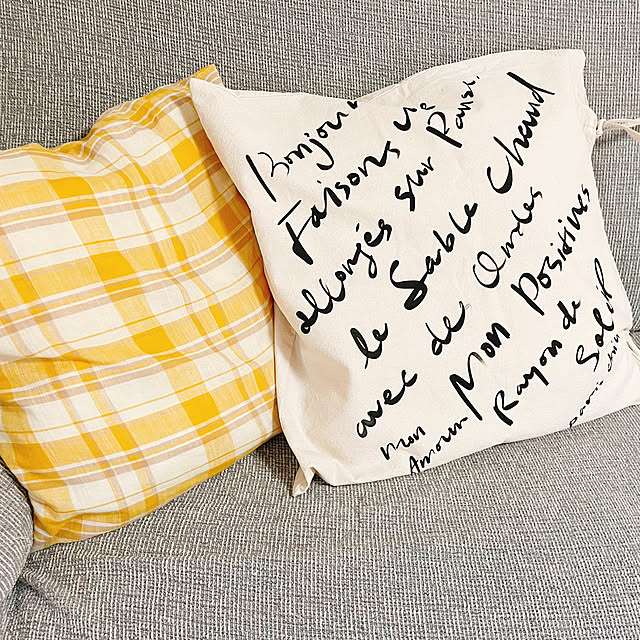 Bonjour
Faisons Une Pause,
allongés sur
le Sable Chaud
avec de Ondes
Mon Positives
mon Amour
Rayon de Soleil